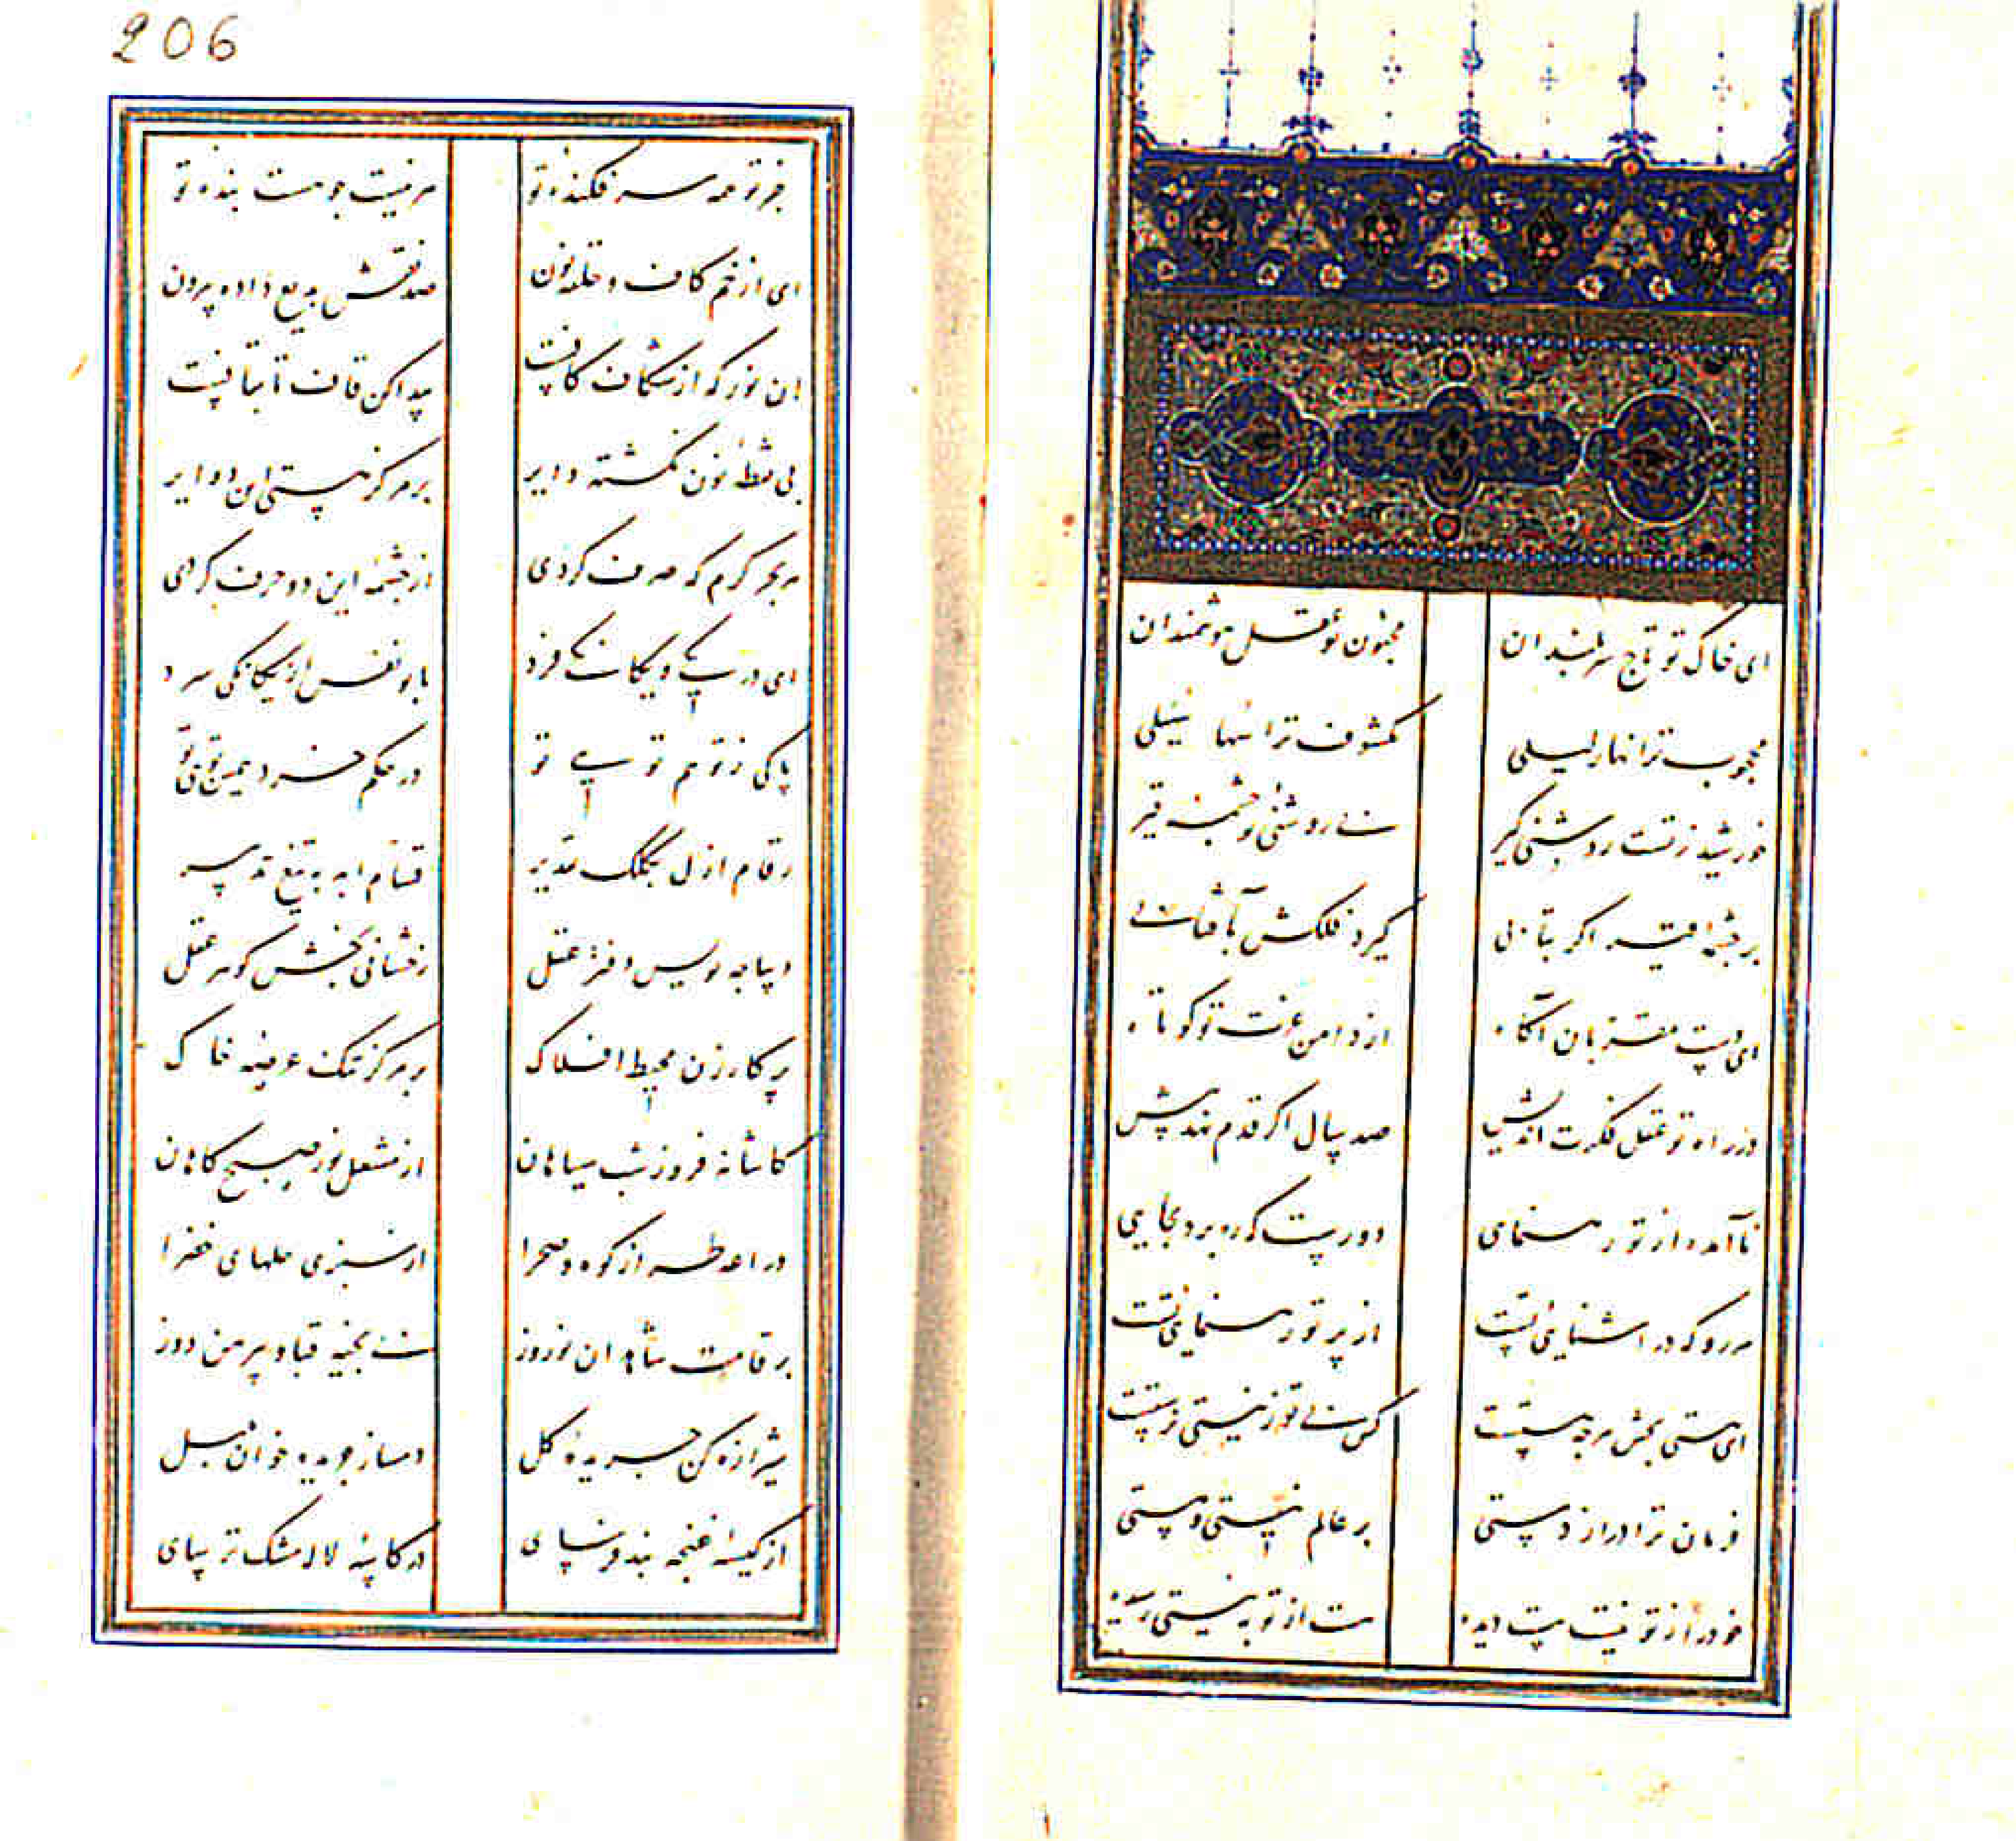 ای خاک تو تاج سربلندان مجنون تو عقل هوشمندان
محجوب ترا نهار لیلی مکشوف ترا سها سهیلی
خورشید ز تست روشنی گیر بی روشنی تو چشمه قیر
بر چشمه قیر اگر بتابی گیرد فلکش بآفتابی
ای هیبت مقربان آگاه از دامن عزت تو کوتاه
در راه تو عقل فکرت اندیش صد سال اگر قدم نهد پیش
نا آمده از تو رهنمای دورست که ره برد بجایی
هر رو که در آشنایی تست از پرتو رهنمایی تست
ای هستی بخش هرچه هست کس بی تو ز نیستی نرستست
فرمان ترا دراز دستی بر عالم نیستی و هستی
خود را از تو نیست هست دیده هست از تو به نیستی رسیده
206
جز تو همه سر فکنده تو هر نیست چو هست بنده تو
ای از خم کاف و حلقه نون صد نقش بدیع داده بیرون
آن نور که از شکاف کافیست پیدا کن قاف تا بقافیست
بی نقطه نون نگشته دایر بر مرکز نیستی این دوایر
هر بحر کرم که صرف کردی از چشمه این دو حرف کردی
ای در یکی و یگانگی فرد با تو نفس از یگانگی سرد
پاکی ز تو هم تو بی تو در حکم خرد همین تویی تو
رقام ازل بکلک تقدیر قسام ابد به تیغ تدبیر
دیباجه نویس دفتر عقل رخشانی بخش گوهر عقل
پرکار زن محیط افلاک بر مرکز تنگ عرصه خاک
کاشانه فروز شب سیاهان از مشعل نور صبح کاهان
دراعه طراز کوه و صحرا از سبزی حلهای خضرا
بر قامت شاهدان نوروز بی بخیه قبا و پیرهن دوز
شیرازه کن جریده گل دمساز جریده خوان بلبل
از کیسه غنچه بند فرسای در کاسه لاله مشک تر سای